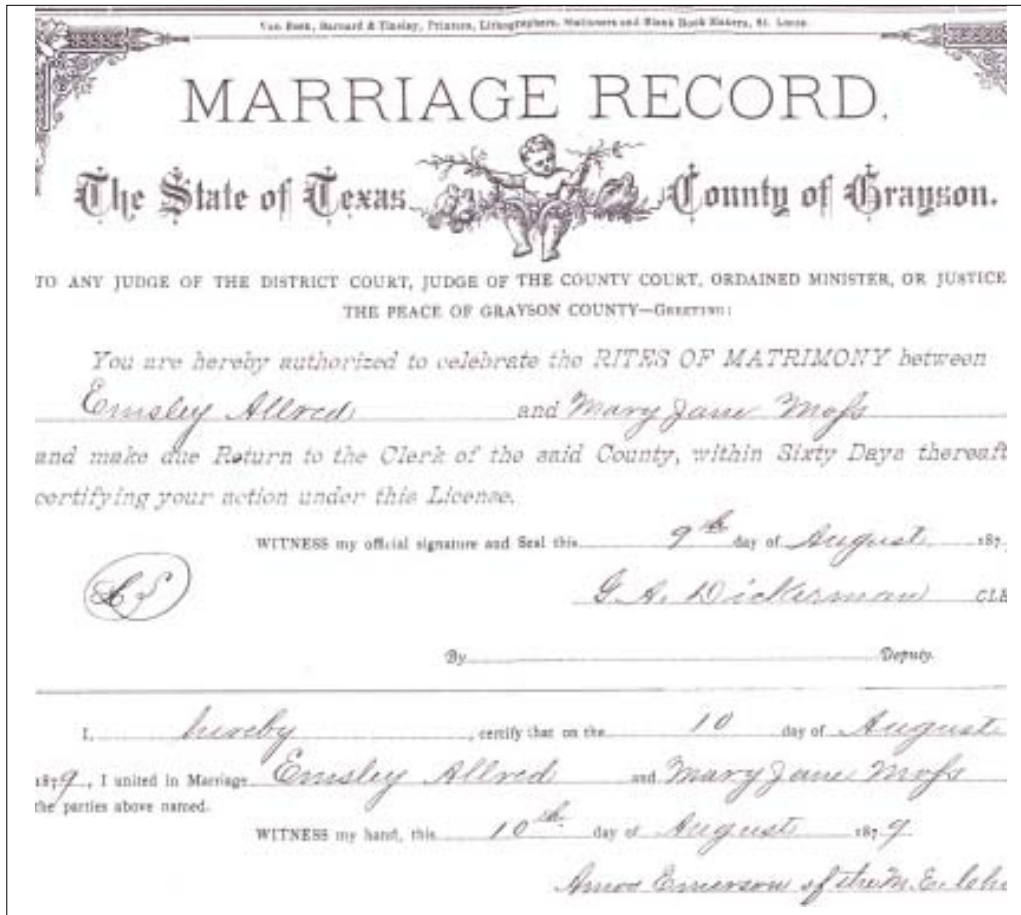 Van Beek, Barnard & Tinsley, Printers, Lithographers, Stationers and Blank Book Makers, St. Louis
MARRIAGE RECORD.
The State of Texas, County of Grayson.
TO ANY JUDGE OF THE DISTRICT COURT, JUDGE OF THE COUNTY COURT, ORDAINED MINISTER, OR JUSTICE
THE PEACE OF GRAYSON COUNTY—GREETING:
You are hereby authorized to celebrate the RITES OF MATRIMONY between
Emsley Allred and Mary Jane Moss
and make due Return to the Clerk of the said County, within Sixty Days thereaft
certifying your action under this License.
WITNESS my official signature and Seal this 9th day of August 187
LS
G. A. Dickerman CLE
By Deputy.
I, hereby, certify that on the 10 day of August
1879, I united in Marriage Emsley Allred and Mary Jane Moss
the parties above named.
WITNESS my hand, this 10th day of August 1879.
Amos Emerson of the M. E. Chu